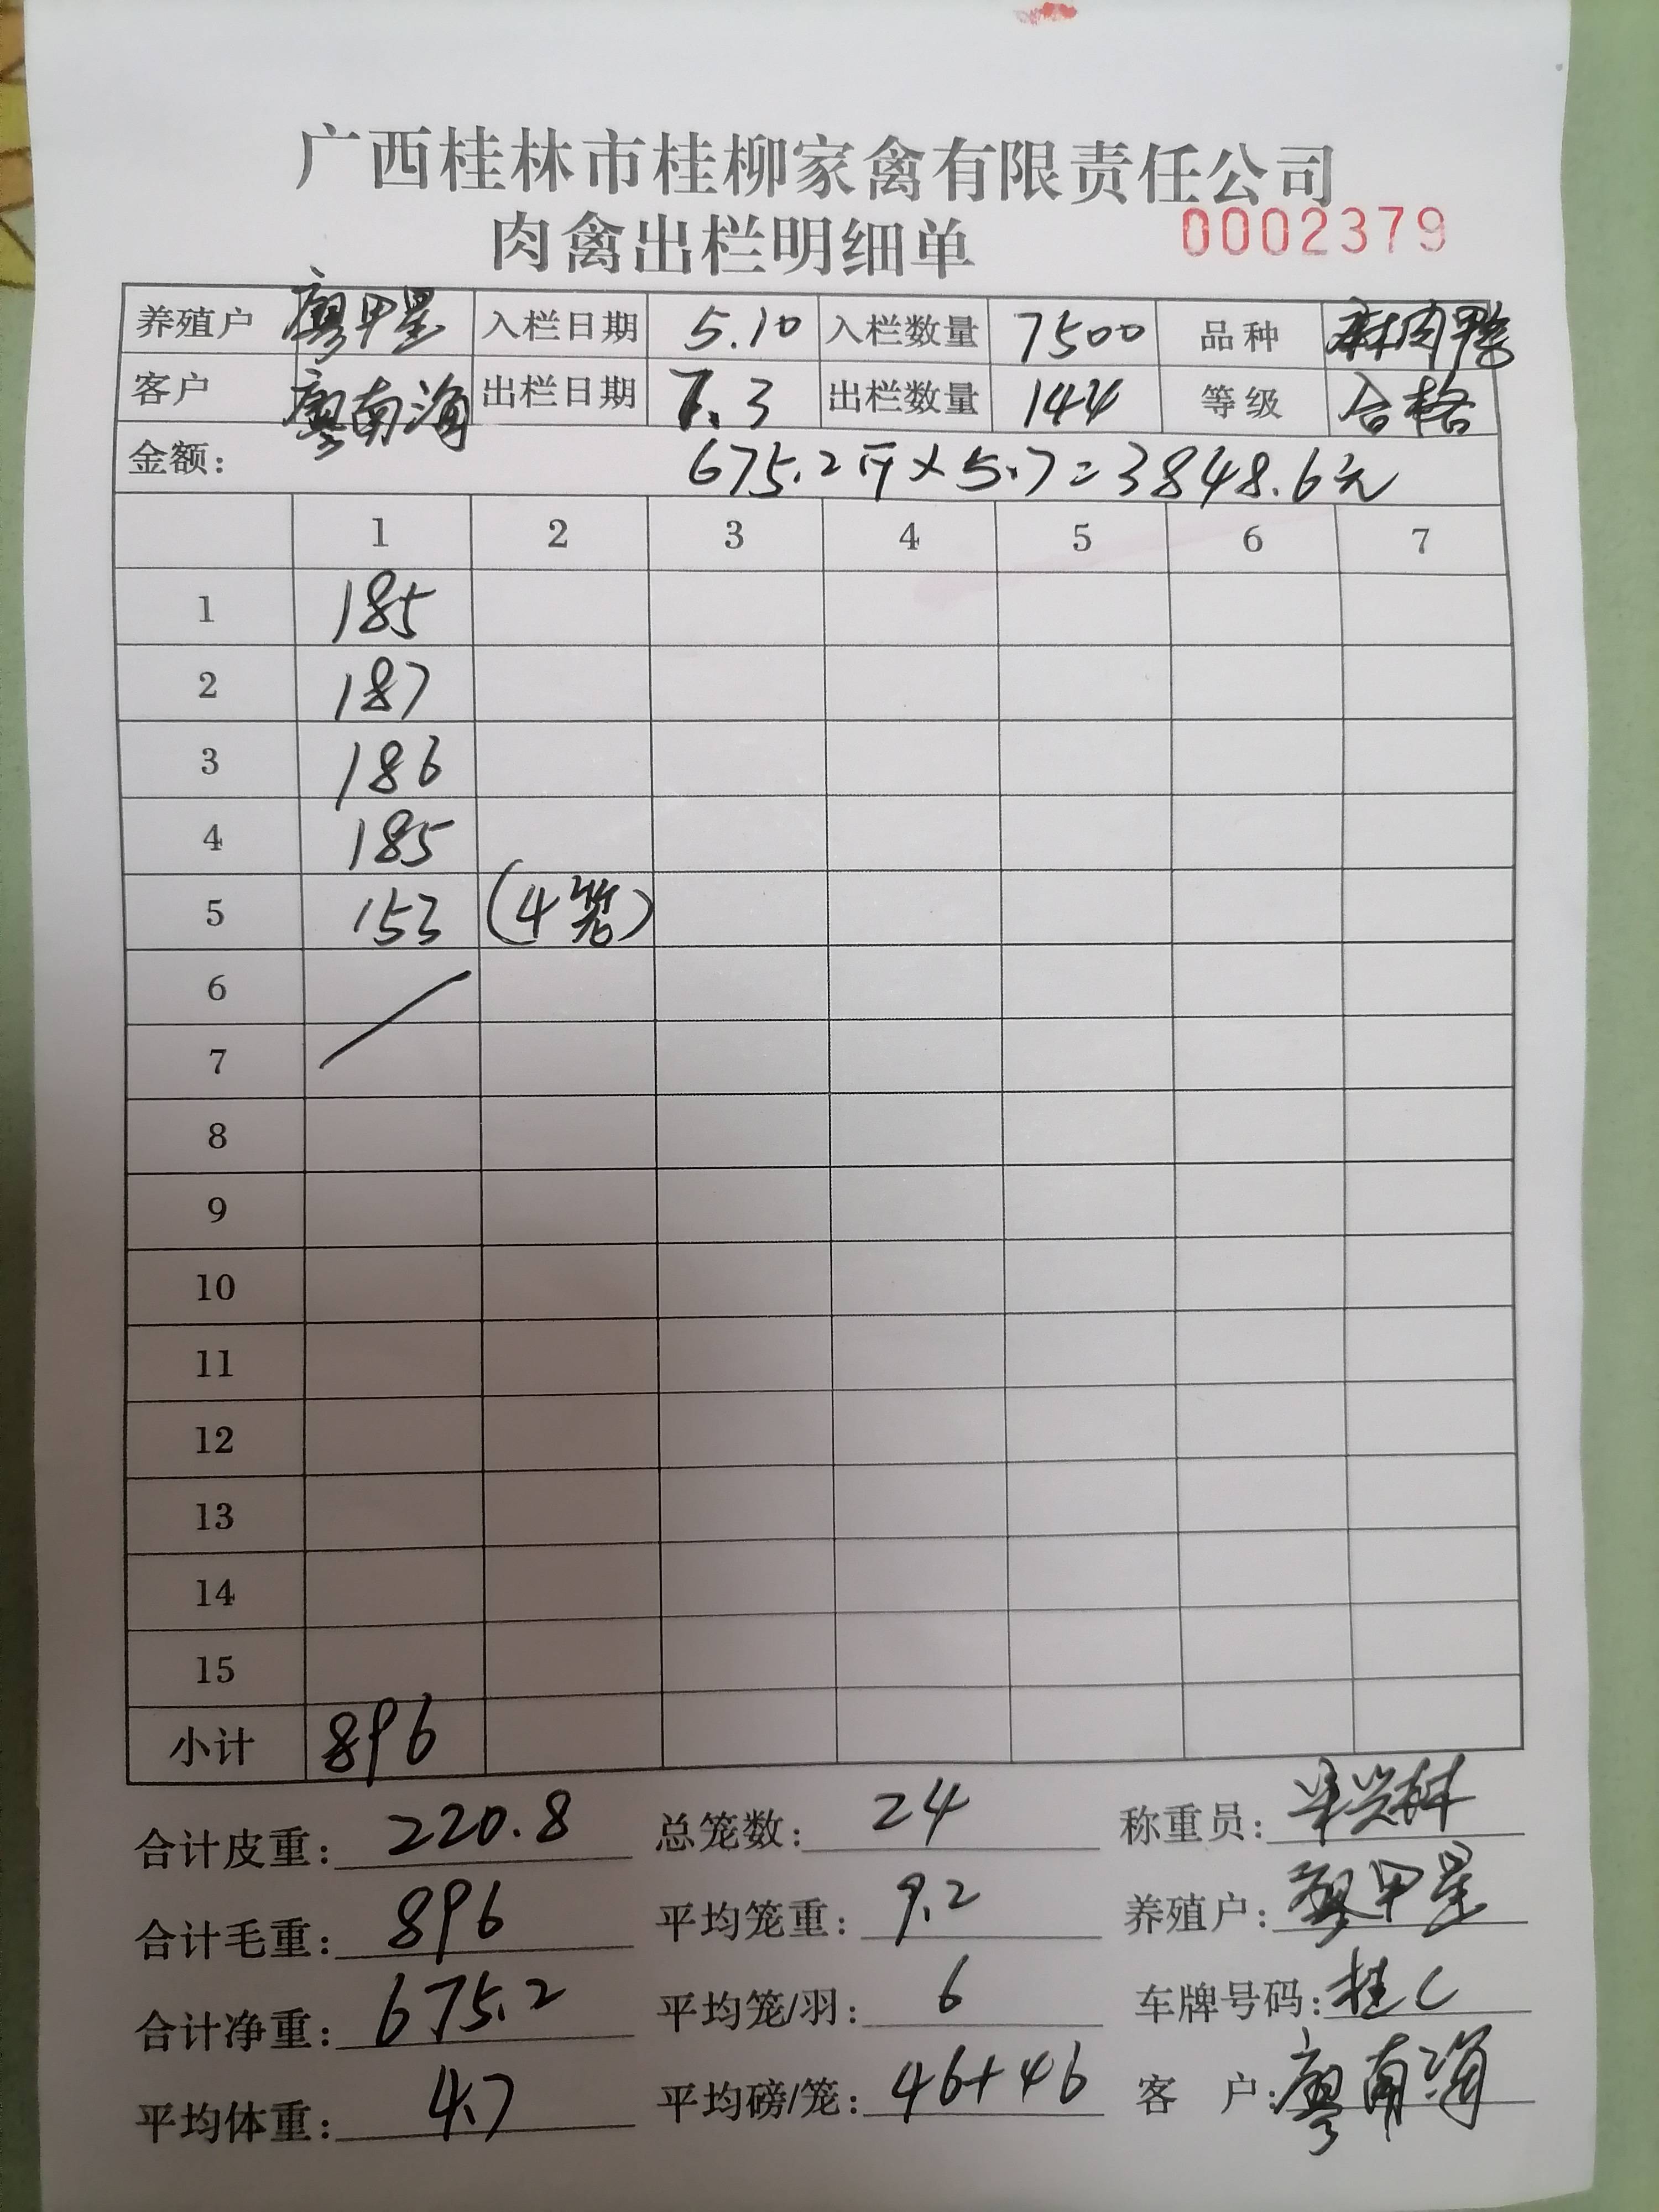 广西桂林市桂柳家禽有限责任公司
肉禽出栏明细单 0002379
养殖户 廖甲星 入栏日期 5.10 入栏数量 7500 品种 麻肉鸭
客户 廖南海 出栏日期 7.3 出栏数量 144 等级 合格
金额: 675.2斤×5.7=3848.6元
1 2 3 4 5 6 7
1 185
2 187
3 186
4 185
5 153 (4笼)
6
7
8
9
10
11
12
13
14
15
小计 896
合计皮重: 220.8 总笼数: 24 称重员:
合计毛重: 896 平均笼重: 9.2 养殖户: 廖甲星
合计净重: 675.2 平均笼/羽: 6 车牌号码: 桂C
平均体重: 4.7 平均磅/笼: 46+46 客户: 廖南海